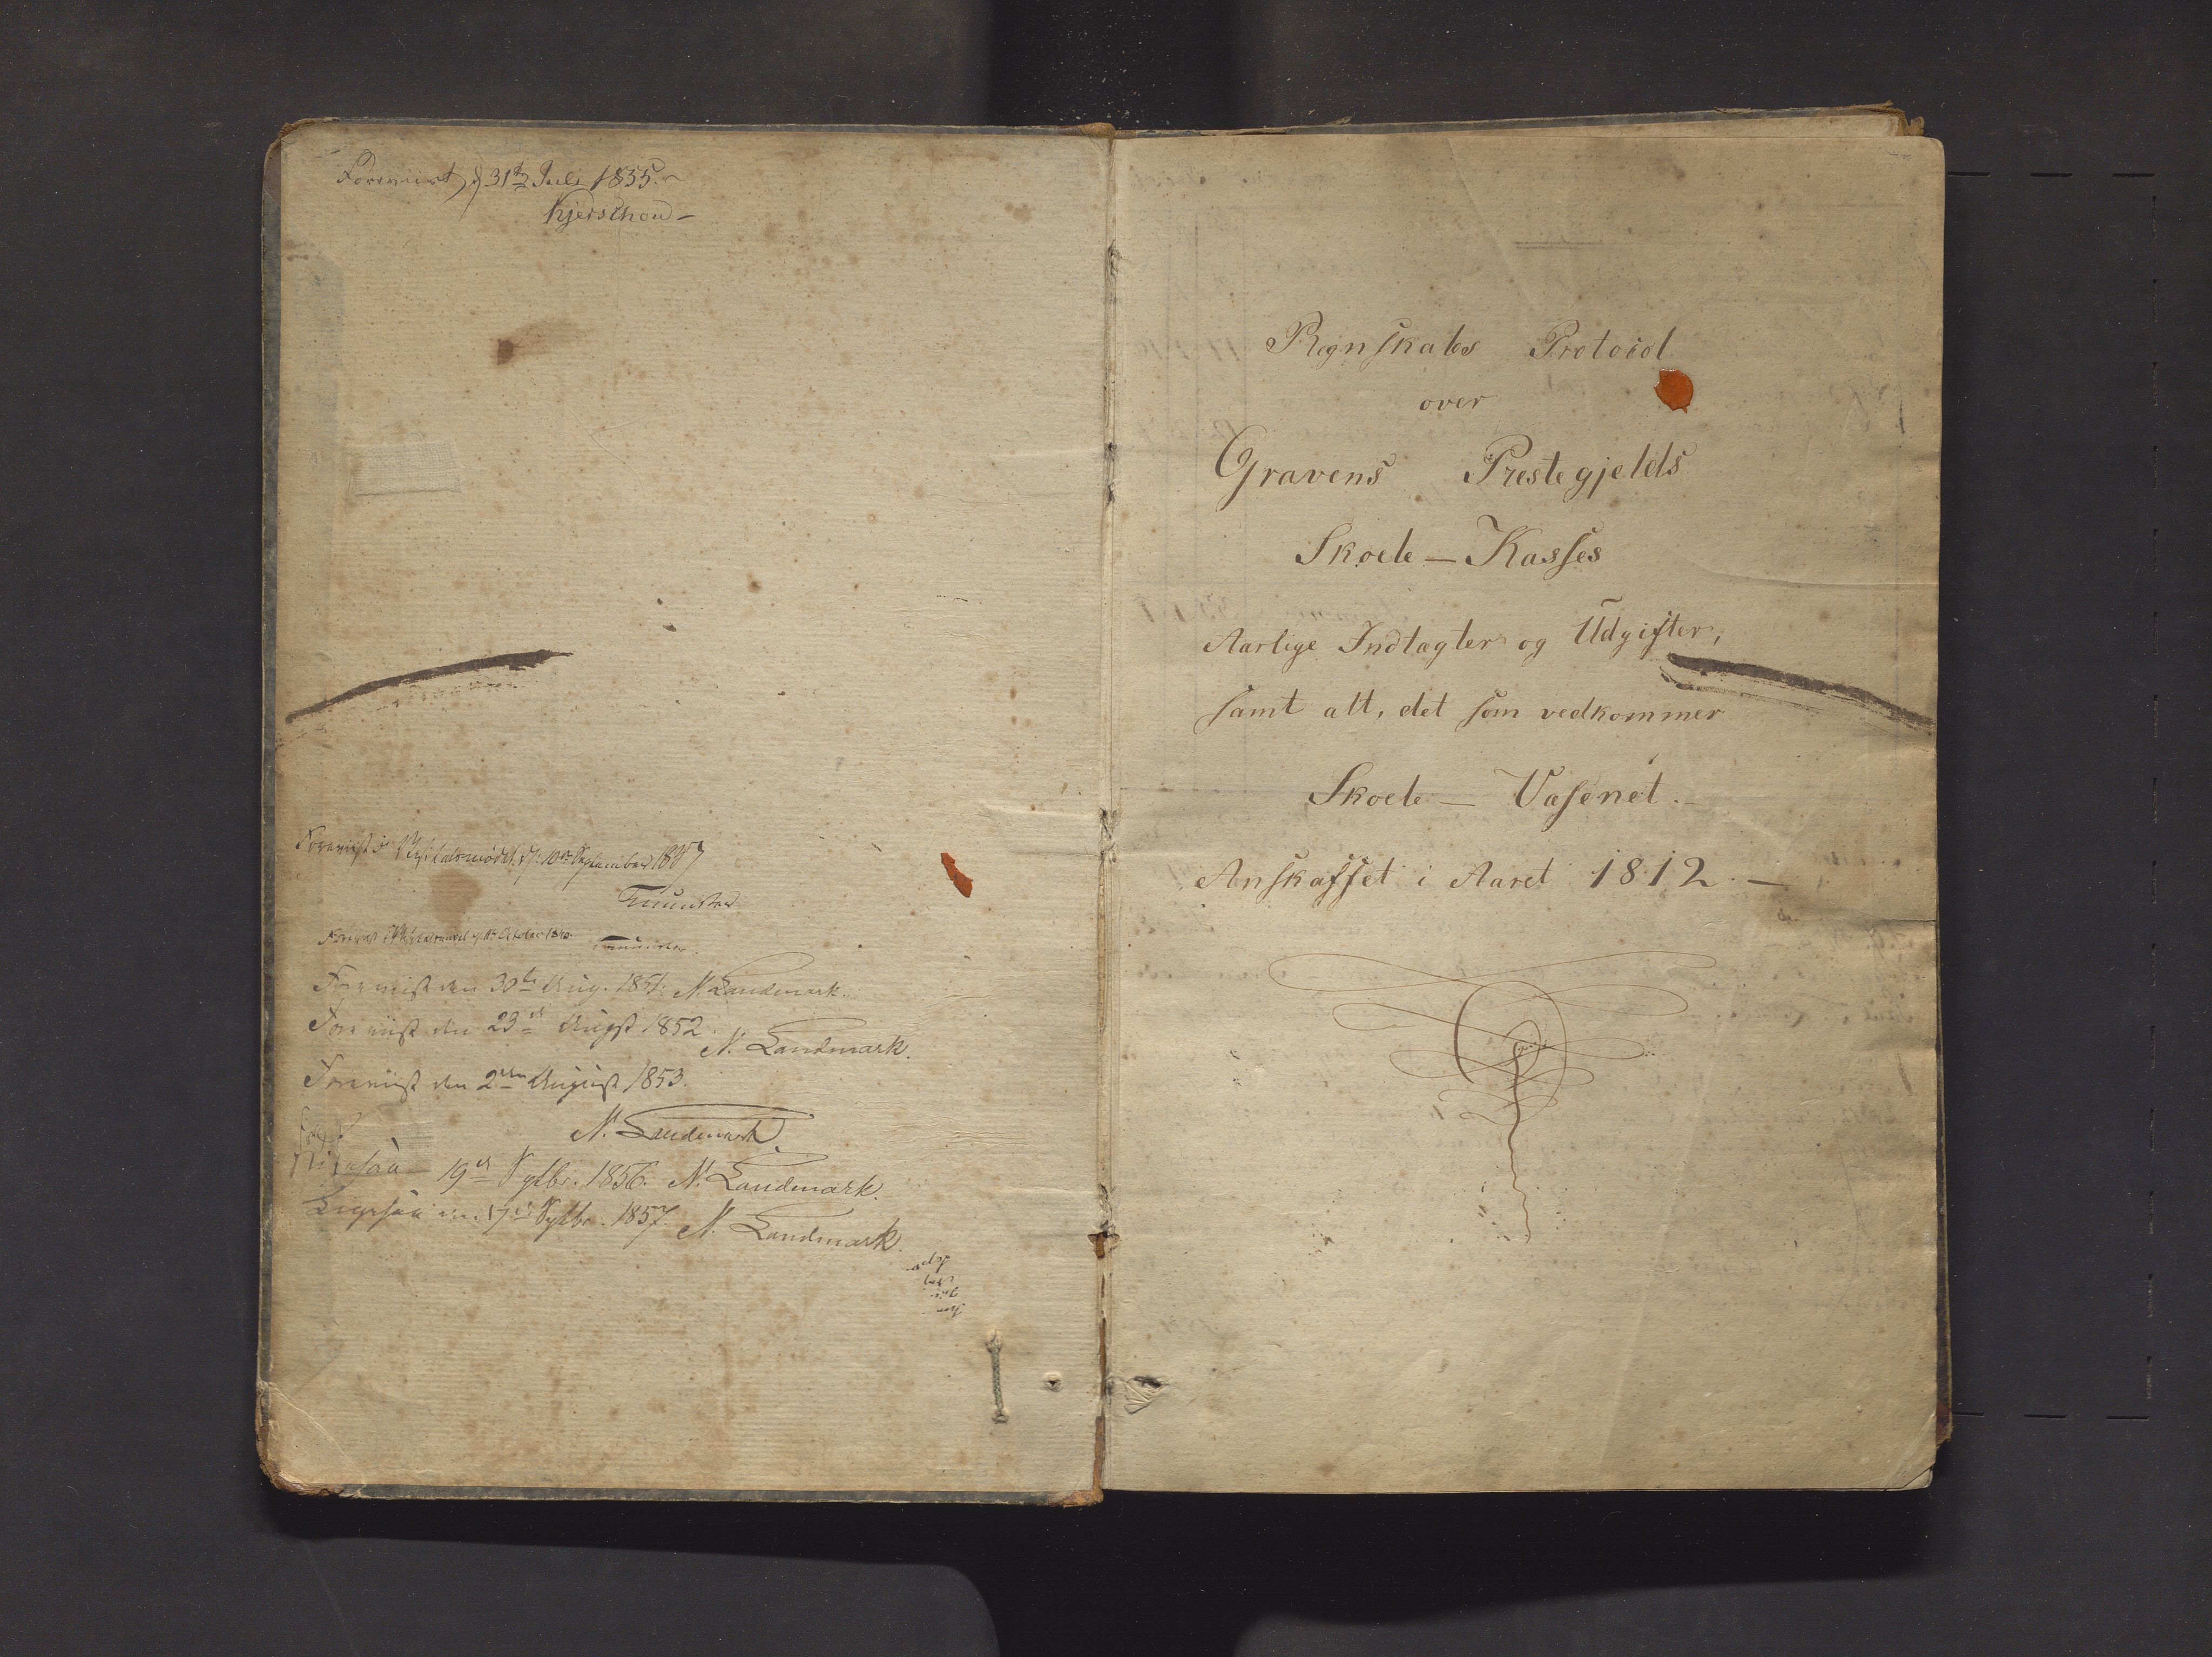 Foreviist d 31te Juli 1835.
Kjerschou
Foreviist i Visitatsmødet d. 10de September 1837
Foreviist d. 11te October 1840.
Foreviist den 30te Aug. 1851. N. Landmark.
Foreviist den 23de Augst 1852.
N. Landmark.
Foreviist den 2den August 1853.
N. Landmark.
19de Septbr. 1856. N. Landmark.
17de Septbr. 1857. N. Landmark.
Regnskabs Protocol
over
Gravens Prestegjelds
Skoele - Kasses
Aarlige Indtægter og Udgifter,
samt alt, det som vedkommer
Skoele - Væsenet.
Anskaffet i Aaret 1812. -